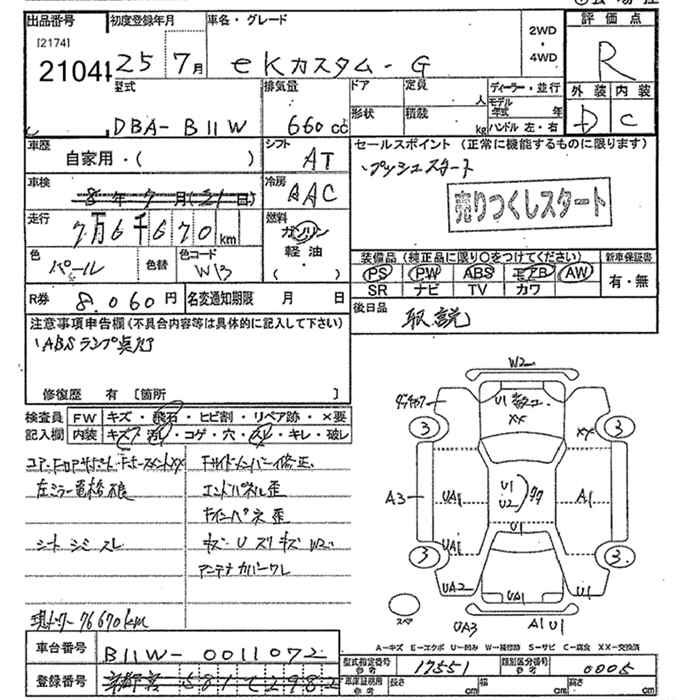 出品番号 初度登録年月 車名・グレード 2WD・4WD 評価点
[2174]
2104 25 7月 eKカスタム-G R
型式 排気量 ドア 定員 人 ディーラー・並行 外装 内装
DBA-B11W 660cc 形状 積載 kg モデル年式 年 ハンドル 左・右 D C
車歴 自家用・( ) シフト AT セールスポイント (正常に機能するものに限ります)
プッシュスタート
車検 8年7月(21日) 冷房 AAC 売りつくしスタート
走行 7万6千670km 燃料 ガソリン 軽油 ( )
色 パール 色替 色コード W13 装備品 (純正品に限り○をつけてください) 新車保証書
PS PW ABS エアB AW 有・無
SR ナビ TV カワ
R券 8.060円 名変通知期限 月 日 後日品 取説
注意事項申告欄(不具合内容等は具体的に記入して下さい)
ABSランプ点灯
修復歴 有 [箇所 ]
検査員 FW キズ・飛石・ヒビ割・リペア跡・×要
記入欄 内装 キズ・汚レ・コゲ・穴・スレ・キレ・破レ
エンドパネル歪
シートシミスレ
アンテナカバーワレ
現メーター 76670km
W2
U1 XX
3 3 XX
A3 UA1 U1 U2 A1
U1
UA1
3 3
UA2 UA1 U1
スペア UA3 A1U1
A-キズ E-エクボ U-凹ミ W-補修跡 S-サビ C-腐食 XX-交換済
車台番号 B11W-0011072 型式指定番号 参考 17551 類別区分番号 参考 0005
登録番号 車庫証明用 参考 長さ cm 幅 cm 高さ cm